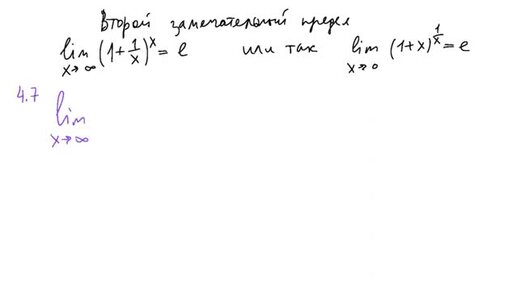 Второй замечательный предел
lim x→∞ (1+1/x)^x = e или так lim x→0 (1+x)^(1/x) = e
4.7 lim x→∞